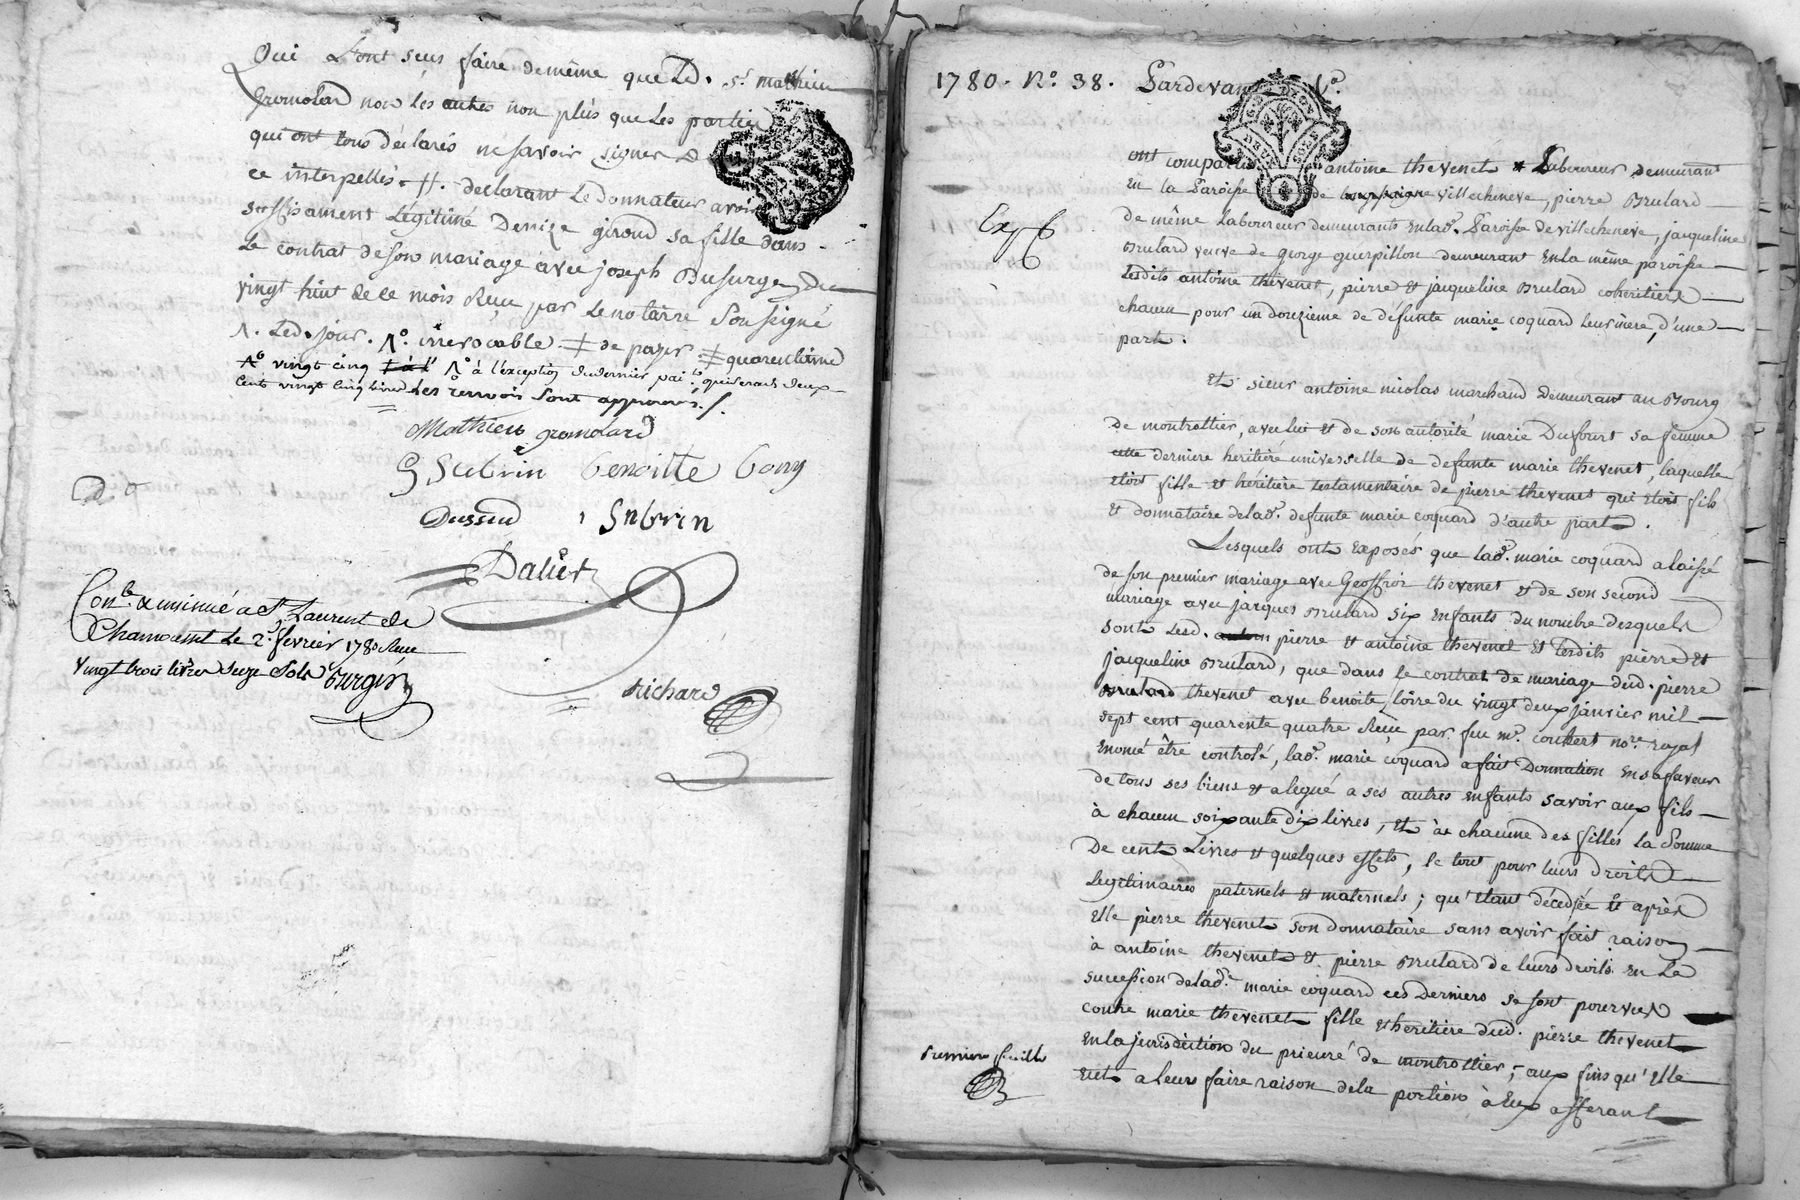 Qui Font seus faire demême que Led. Sr. mathieu
gromolard non les autres non plus que les parties
qui ont tous déclarés ne savoir signer D
ce interpellés. #. declarant Le donnateur avoir
suffisament Légitimé Denize giroud sa fille dans
Le contrat de son mariage avec joseph Dusurgey Du
vingt huit de ce mois Reçu par Le notaire Soussigné
Λ. Led. jour. Λo. irrevocable. ‡ de payer. ‡ quarentième
Λo vingt cinq Λo à l'exception du dernier pai.t qui sera de deux
cents vingt cinq livres Les renvois Sont approuvés./.
Mathieu gromolard
G Subrin Benoitte Bony
Dussud , Subrin
Dalier
Con.lé & insinué a St. Laurent de
Chamousset Le 2.e fevrier 1780 Reçu
vingt trois livres seize sols Gurgis
Richard
1780. No. 38. Pardevant
GEN. DE LYON
DEUX SOLS
ont comparu antoine thevenet Laboureur demeurant
En la Paroisse de villecheneve, pierre Brulard
de même Laboureur demeurants en lad.e Paroisse de villecheneve, jacqueline
Brulard veuve de george guerpillon demeurant En la même paroisse
Lesdits antoine thevenet, pierre et jacqueline Brulard coheritiers
chacun pour un douzieme de défunte marie coquard leur mere, d'une
part.
Exp.é
Et sieur antoine nicolas marchand Demeurant au Bourg
de montrottier, avec lui et de son autorité marie Dufourt sa femme
cette derniere héritiére universelle de defunte marie thevenet, laquelle
etoit fille et héritiére testamentaire de pierre thevenet qui etoit fils
et donnataire de lad.e defunte marie coquard d'autre part.
Lesquels ont exposés que lad.e marie coquard a laissé
de son premier mariage avec Geoffroi thevenet et de son second
mariage avec jacques Brulard six enfants du nombre desquels
sont Lesd. pierre et antoine thevenet et lesdits pierre et
jacqueline Brulard, que dans le contrat de mariage dud. pierre
thevenet avec benoite Loire du vingt deux janvier mil
sept cent quarente quatre Reçu par feu m.e coulert no.re royal
Enoncé être controlé, lad.e marie coquard a fait Donnation En sa faveur
de tous ses biens et a legué a ses autres enfants savoir aux fils
à chacun soixante dix livres, et à chacune des filles la Somme
De cent Livres et quelques effets, le tout pour leurs droits
Legitimaires paternels et maternels; qu'étant décédée et après
Elle pierre thevenet son donnataire sans avoir fait raison
à antoine thevenet et pierre Brulard de leurs droits En La
succession de lad.e marie coquard ces Derniers se sont pourvus
contre marie thevenet fille et heritiere dud. pierre thevenet
En la jurisdiction du prieuré de montrottier, aux fins qu'Elle
eut a leurs faire raison de la portion à Eux afferant
Premiere feuille